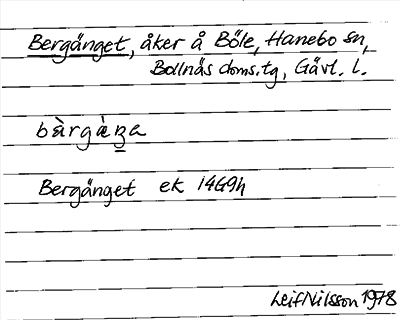 Bergänget, åker å Böle, Hanebo sn,
Bollnäs doms.tg, Gävl. l.
bàrgàŋa
Bergänget ek 14G9h
Leif Nilsson 1978